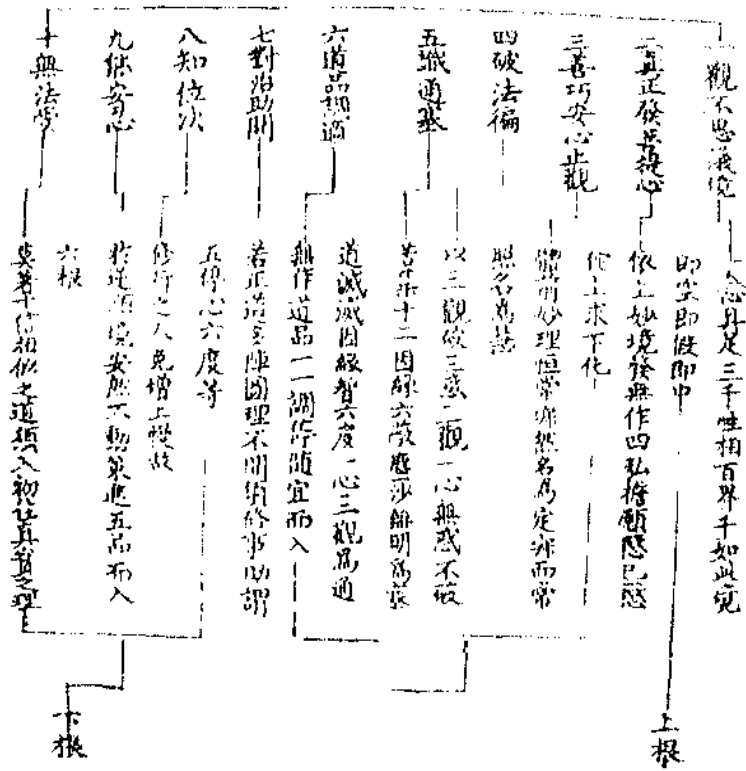 一觀不思議境
一念具足三千性相百界千如此境
即空即假即中
二真正發菩提心
依上妙境發無作四弘誓願愍己愍
他上求下化
三善巧安心止觀
體前妙理恒常寂然名爲定寂而常
照名爲慧
四破法徧
以三觀破三惑三觀一心無惑不破
五識通塞
苦集十二因緣六蔽塵沙無明爲塞
道滅滅因緣智六度一心三觀爲通
六道品調適
無作道品一一調停隨宜而入
七對治助開
若正道多障圓理不開須修事助謂
五停心六度等
八知位次
修行之人免增上慢故
九能安忍
於逆順境安然不動策進五品而入
六根
十無法愛
莫著十信相似之道須入初住真實之理
上根
下根